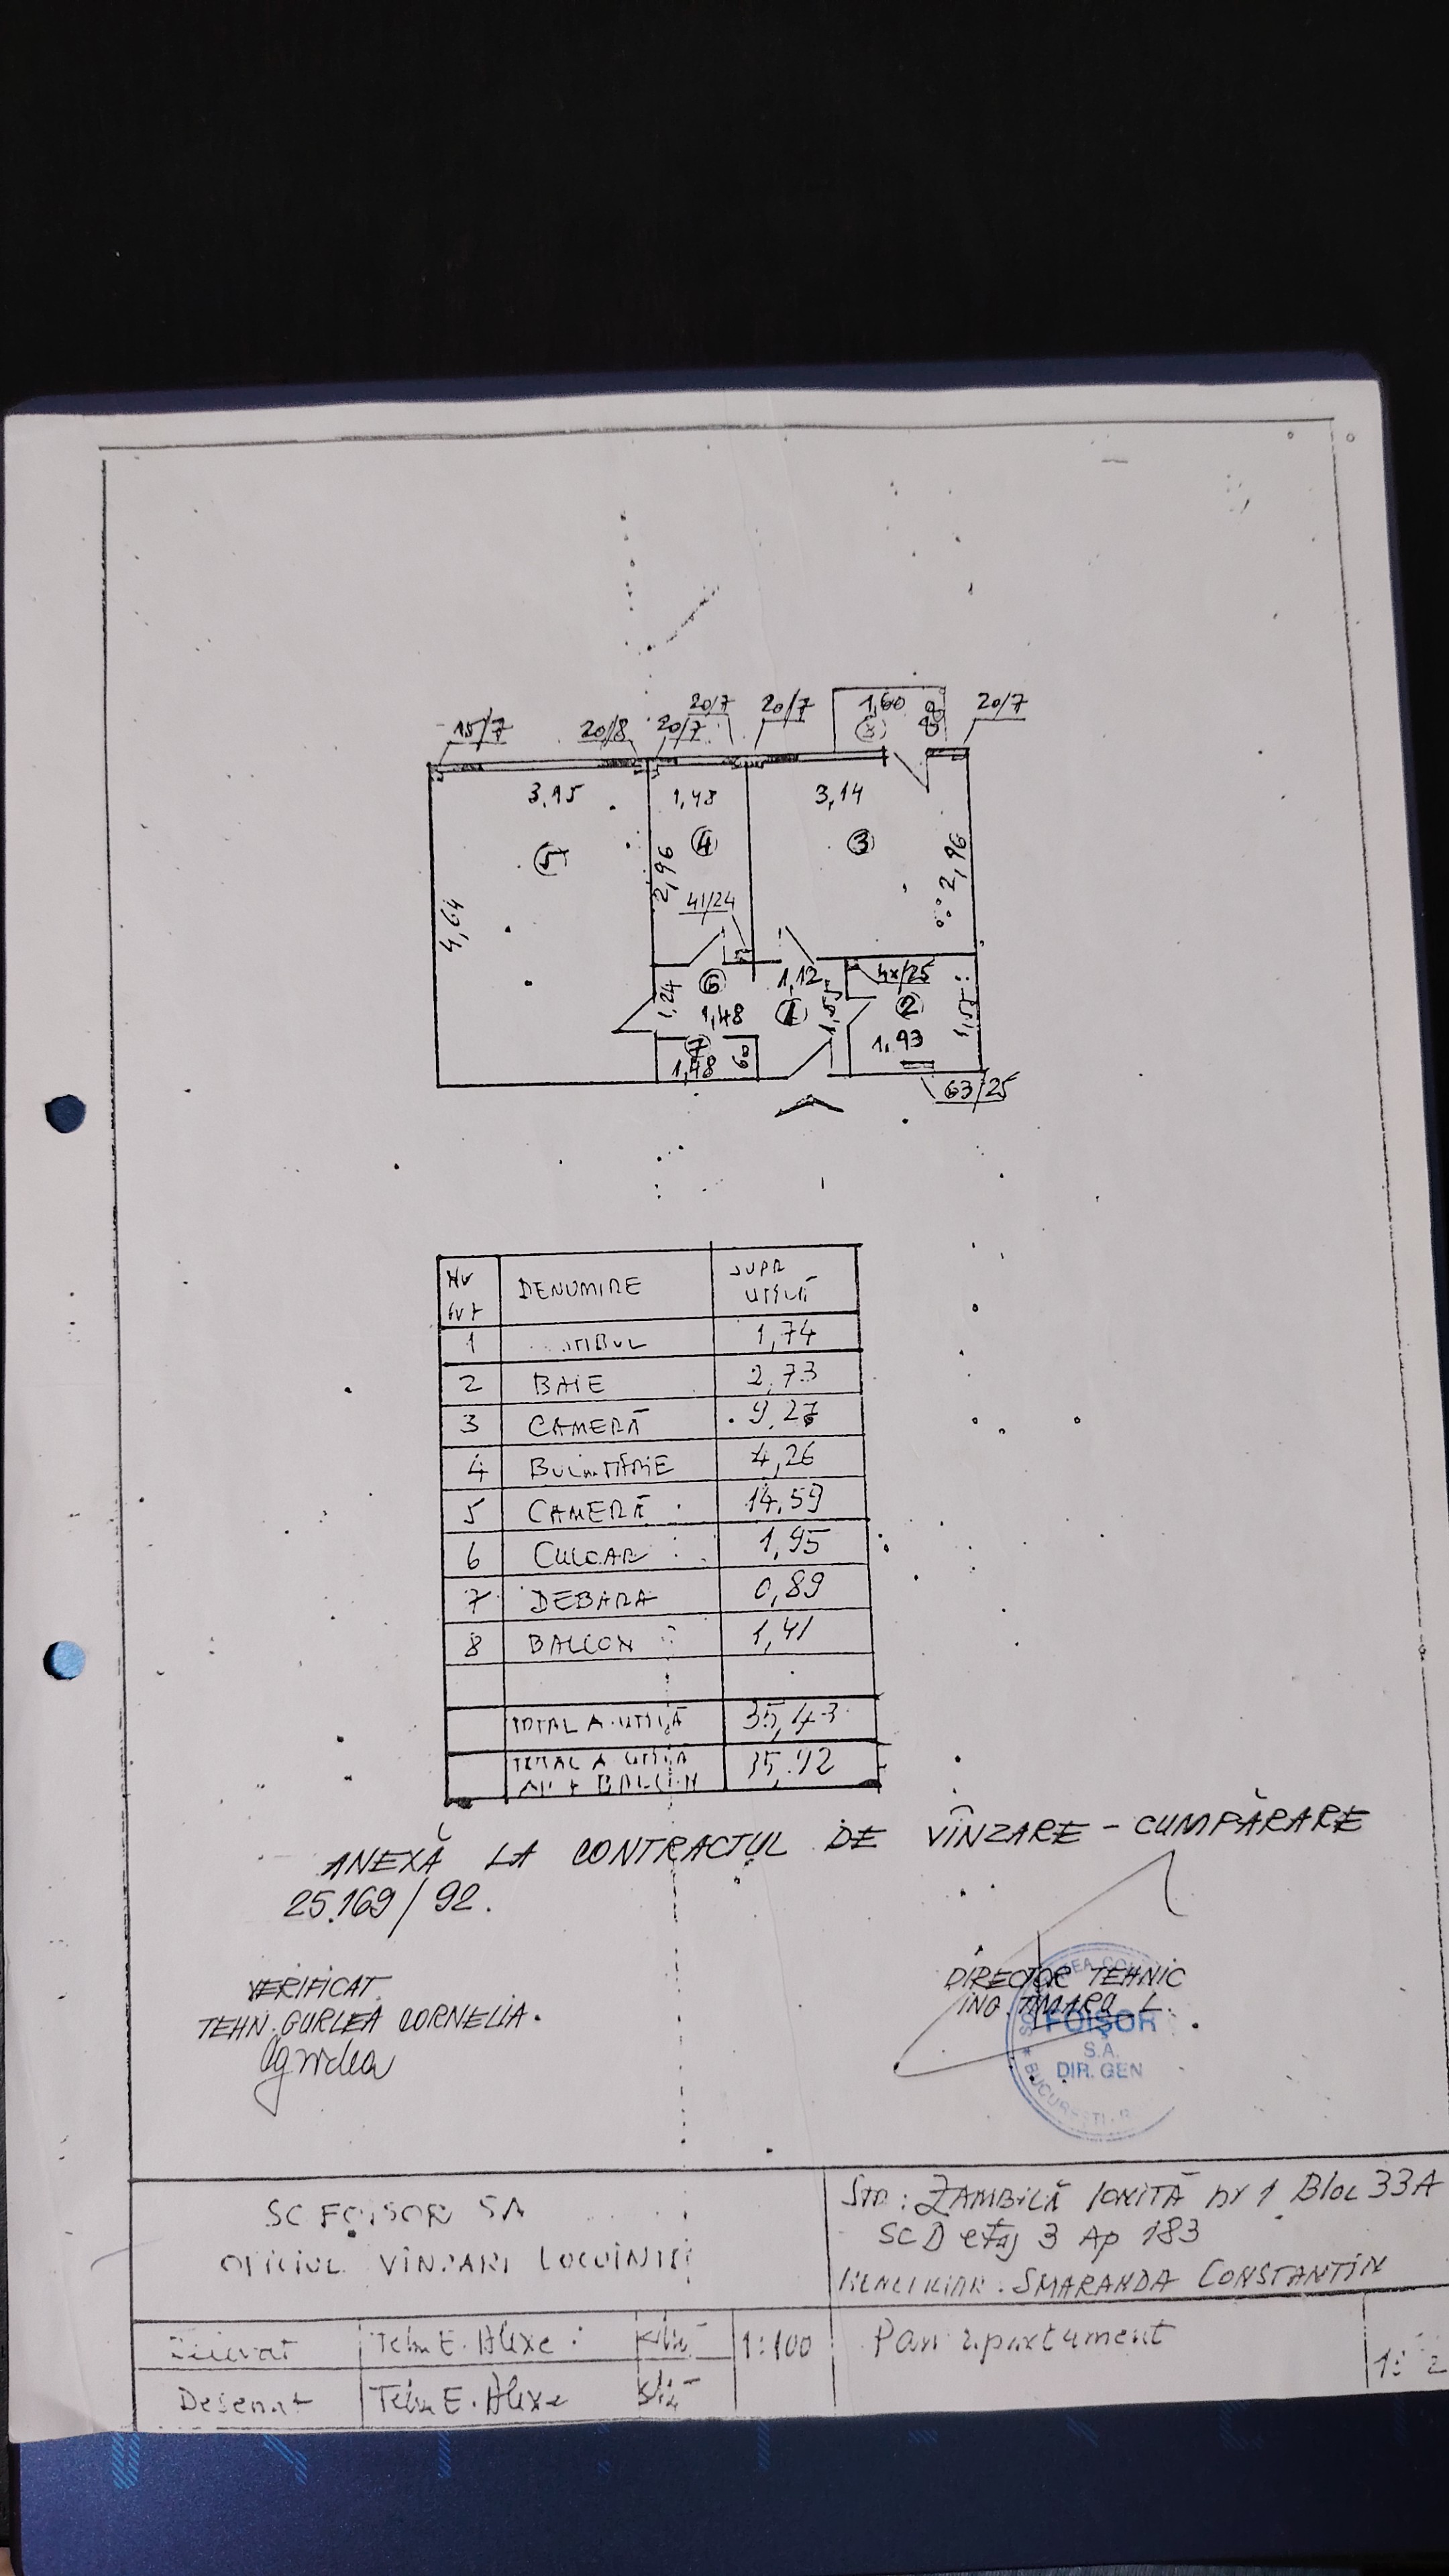 20/7 20/7 1,60 20/7
15/7 20/8 20/7
3,15 1,48 3,14
5 4 3
2,96 2,96
4,64
41/24
6 1,12 4x/25
1,24 1,48 1 1,55 2 1,55
7 1,93
1,48 60
63/25
DENUMIRE SUPR
UTILĂ
1 1,74
2 BAIE 2,73
3 CAMERĂ 9,27
4 4,26
5 CAMERĂ 14,59
6 CULOAR 1,95
7 DEBARA 0,89
8 BALCON 1,41
TOTAL A. UTILĂ 35,43
TOTAL A UTILĂ
BALCON
ANEXĂ LA CONTRACTUL DE VÎNZARE - CUMPĂRARE
25.169 / 92.
VERIFICAT
TEHN. GURLEA CORNELIA.
DIRECTOR TEHNIC
ING. TIMARU L.
FOIŞOR
S.A.
DIR. GEN
BUCUREŞTI
SC FOISOR SA
OFICIUL VÎNZARI LOCUINTE
STR: ZAMBILĂ IONIȚĂ nr 1 Bloc 33A
SC D etaj 3 Ap 183
SMARANDA CONSTANTIN
Tehn E. Alexe 1:100
Desenat Tehn E. Alexe